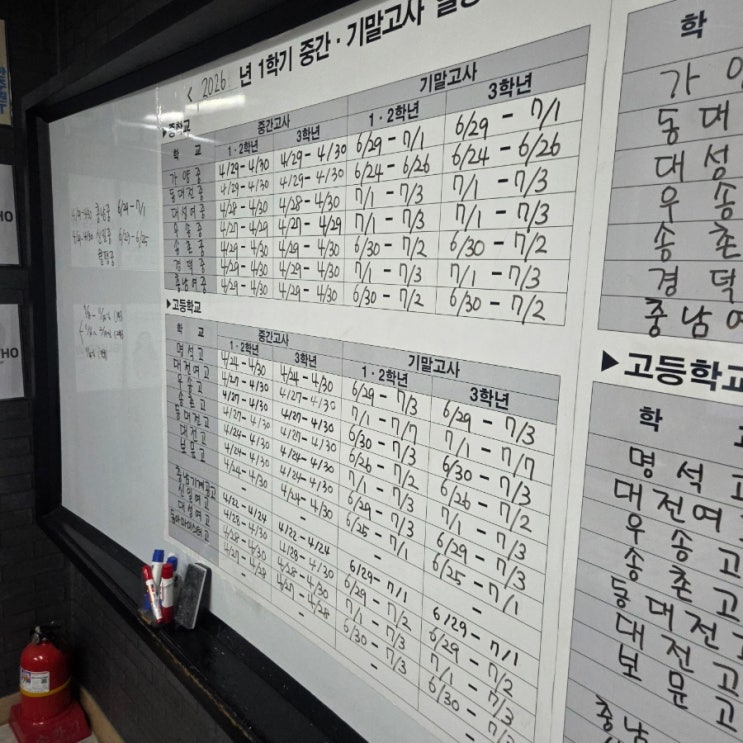 < 2026 년 1학기 중간·기말고사 일정
▶중학교
학 교 중간고사 기말고사
1·2학년 3학년 1·2학년 3학년
가양중 4/29-4/30 4/29-4/30 6/29-7/1 6/29-7/1
동대전중 4/29-4/30 4/29-4/30 6/24-6/26 6/24-6/26
대성여중 4/28-4/30 4/28-4/30 7/1-7/3 7/1-7/3
우송중 4/27-4/29 4/27-4/29 7/1-7/3 7/1-7/3
송촌중 4/29-4/30 4/29-4/30 6/30-7/2 6/30-7/2
경덕중 4/29-4/30 4/29-4/30 7/1-7/3 7/1-7/3
충남여중 4/29-4/30 4/29-4/30 6/30-7/2 6/30-7/2
▶고등학교
학 교 중간고사 기말고사
1·2학년 3학년 1·2학년 3학년
명석고 4/24-4/30 4/24-4/30 6/29-7/3 6/29-7/3
대전여고 4/27-4/30 4/27-4/30 7/1-7/7 7/1-7/7
우송고 4/27-4/30 4/27-4/30 6/30-7/3 6/30-7/3
송촌고 4/27-4/30 4/27-4/30 6/26-7/2 6/26-7/2
동대전고 4/24-4/30 4/24-4/30 7/1-7/3 7/1-7/3
대전고 4/24-4/30 4/24-4/30 6/29-7/3 6/29-7/3
보문고 4/24-4/30 4/24-4/30 6/25-7/1 6/25-7/1
- - - -
충남기계공고 4/22-4/24 4/22-4/24 6/29-7/1 6/29-7/1
신일여고 4/28-4/30 4/28-4/30 6/29-7/2 6/29-7/2
대성여고 4/28-4/30 4/28-4/30 7/1-7/3 7/1-7/3
동아마이스터고 4/27-4/28 4/27-4/28 6/30-7/3 6/30-7/3
- -
학
가양
동대
대성
우송
송촌
경덕
충남여
▶고등학교
학 교
명석고
대전여
우송고
송촌고
동대전고
대전고
보문고
충남